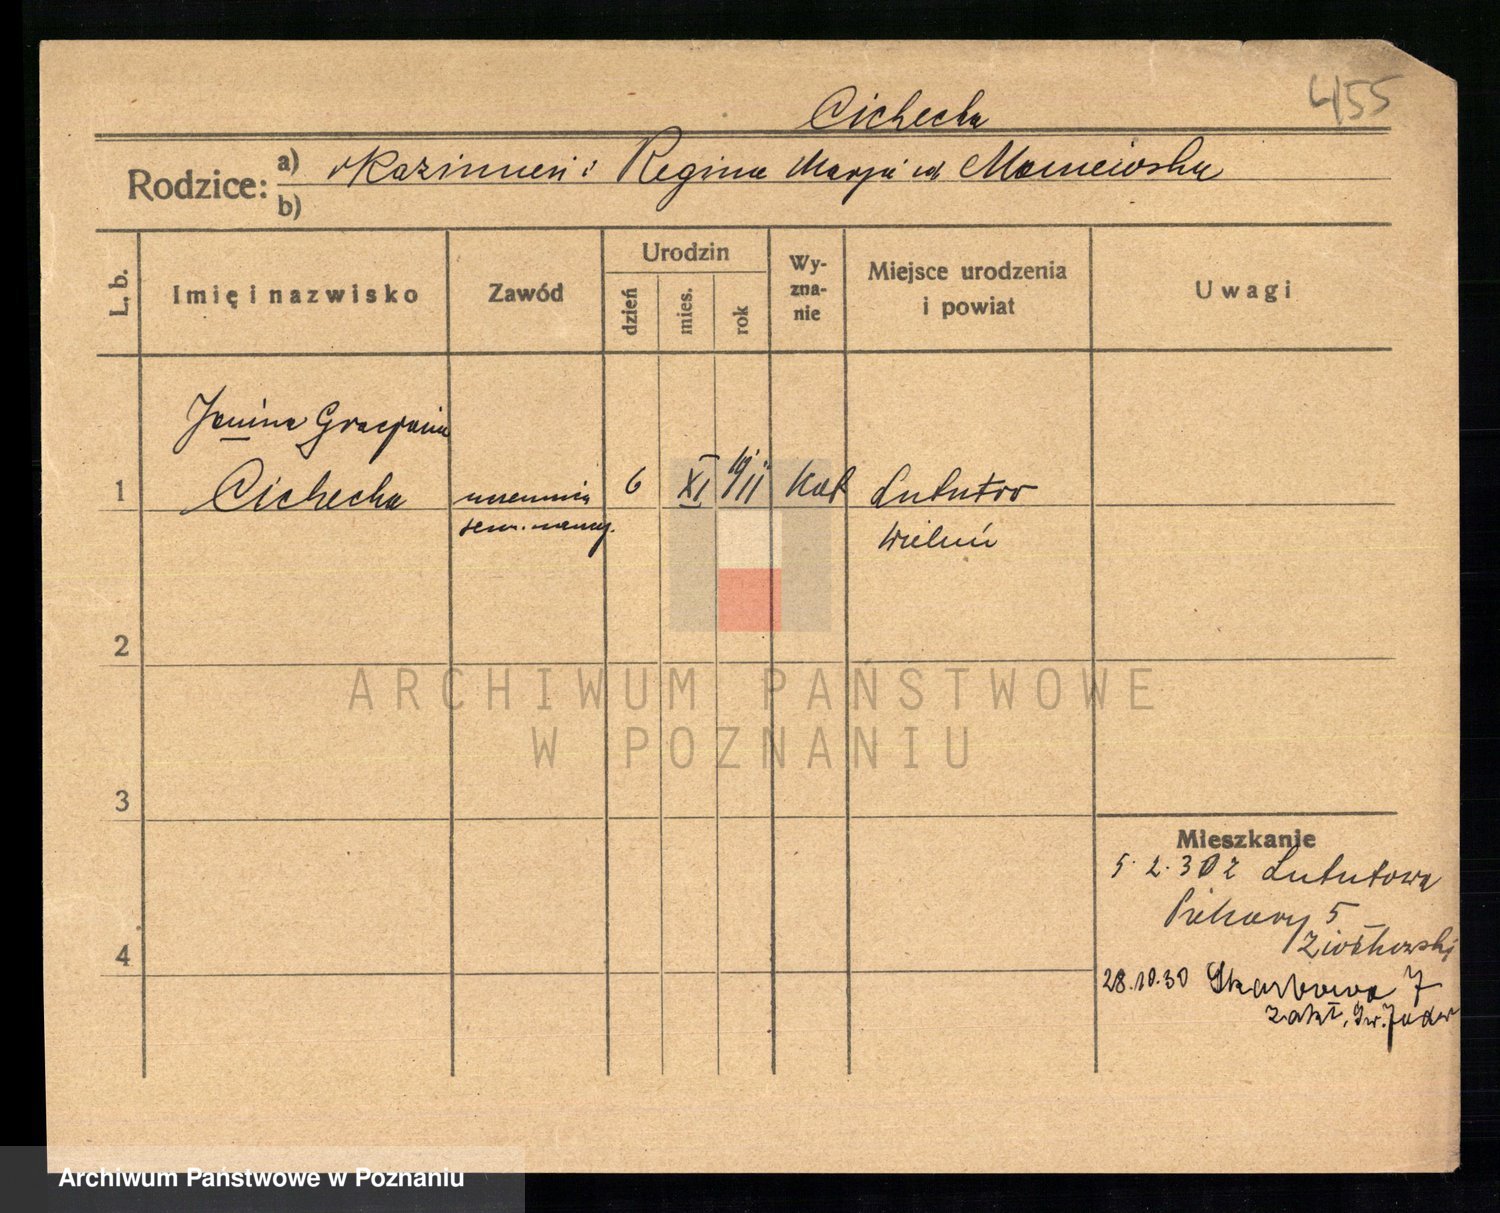 4155
Cichecka
Rodzice: a) Kazimierz i Regina Marja
b)
L. b.
Imię i nazwisko
Zawód
Urodzin
dzień
mies.
rok
Wy-
zna-
nie
Miejsce urodzenia
i powiat
Uwagi
Janina Gracjana
1 Cichecka uczennica 6 XI 1911 Kat Lututów
semin. naucz. Wieluń
2
ARCHIWUM PAŃSTWOWE
W POZNANIU
3
Mieszkanie
5.2.30 z Lututowa
Piekary 5
4
28.10.30 Skarbowa 7
Zakł. Św. Jadw
Archiwum Państwowe w Poznaniu